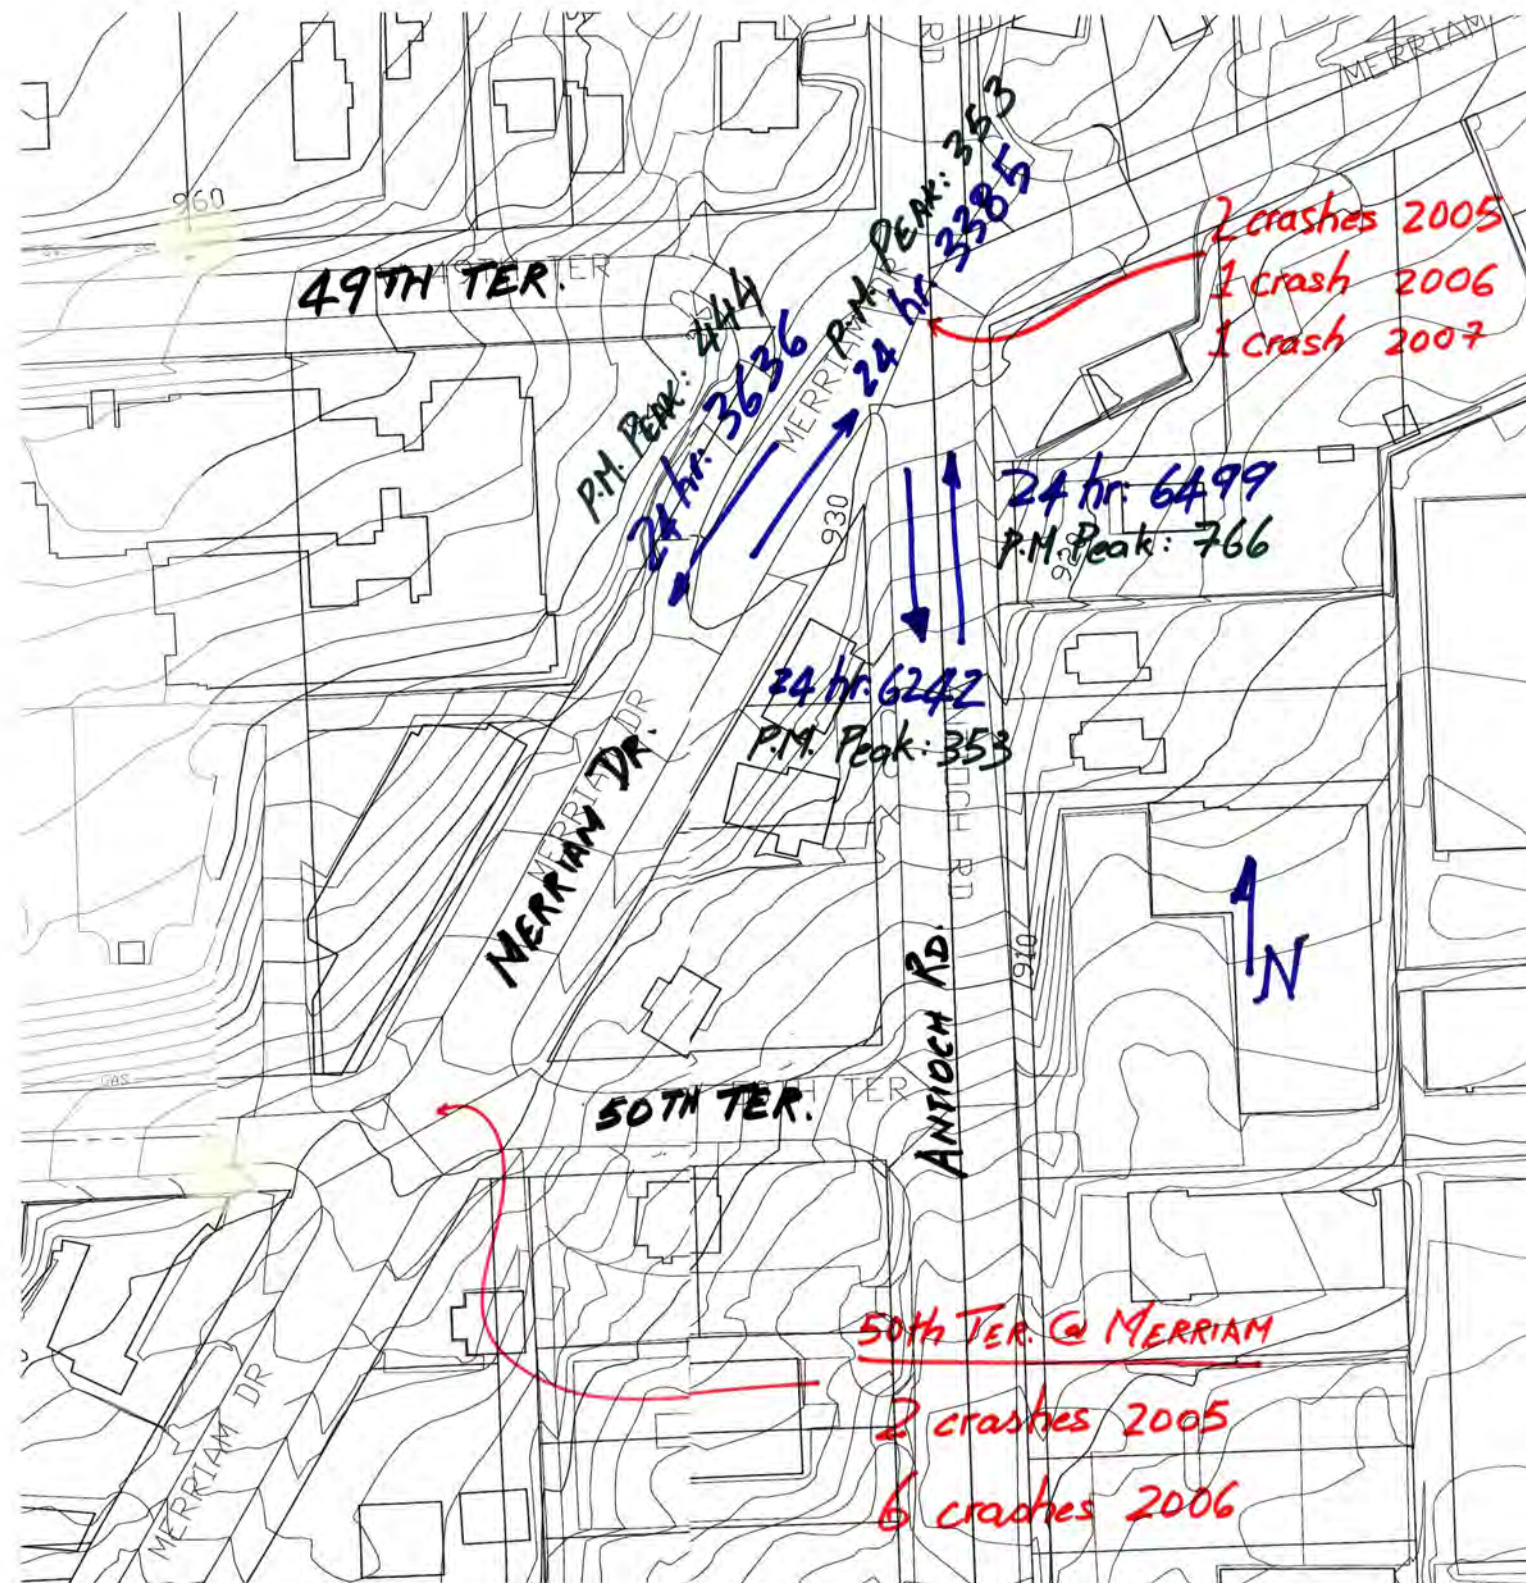 RD
MERRIAM
960
P.M. PEAK: 353
24 hr. 3385
2 crashes 2005
1 crash 2006
1 crash 2007
49TH TER.
TER
P.M. PEAK: 444
24 hr: 3636
MERRIAM
930
24 hr: 6499
P.M. Peak: 766
920
24 hr. 6242
P.M. Peak: 353
MERRIAM DR
MERRIAM DR.
OCH RD
ANTIOCH RD.
910
N
GAS
50TH TER.
TER
50th TER. @ MERRIAM
2 crashes 2005
6 crashes 2006
MERRIAM DR